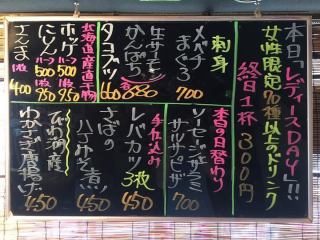 本日「レディースDAY」!!
女性限定70種以上のドリンク
終日1杯300円
刺身
メバチまぐろ 700
生サーモン
かんぱち 各680
タコブツ 660
北海道産直干物
ホッケ ハーフ 500 950
にしん ハーフ 500 950
こまい 1枚 400
本日の日替わり
ソーセージとサラミ
サルサピザ 700
手仕込み
レバカツ 3枚 450
さばの
ハニみそ煮 450
びわ湖産
ゆあさぎ唐揚げ 450